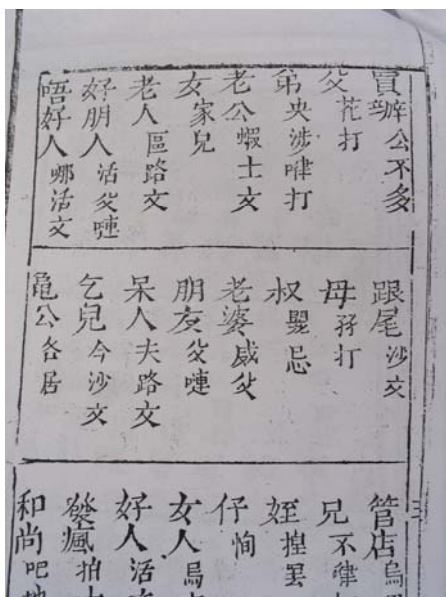 買辦 公不多
父 花打
弟 央涉嘩打
老公 蝦士文
女 家兒
老人 區路文
好朋人 活父嗹
唔好人 哪活文
跟尾 沙文
母 孖打
叔 忌
老婆 威父
朋友 父嗹
呆人 夫路文
乞兒 今沙文
龜公 各居
三
管店 烏
兄 不律
姪
仔 恂
女人 烏
好人 活文
發瘋 拍
和尚 吧